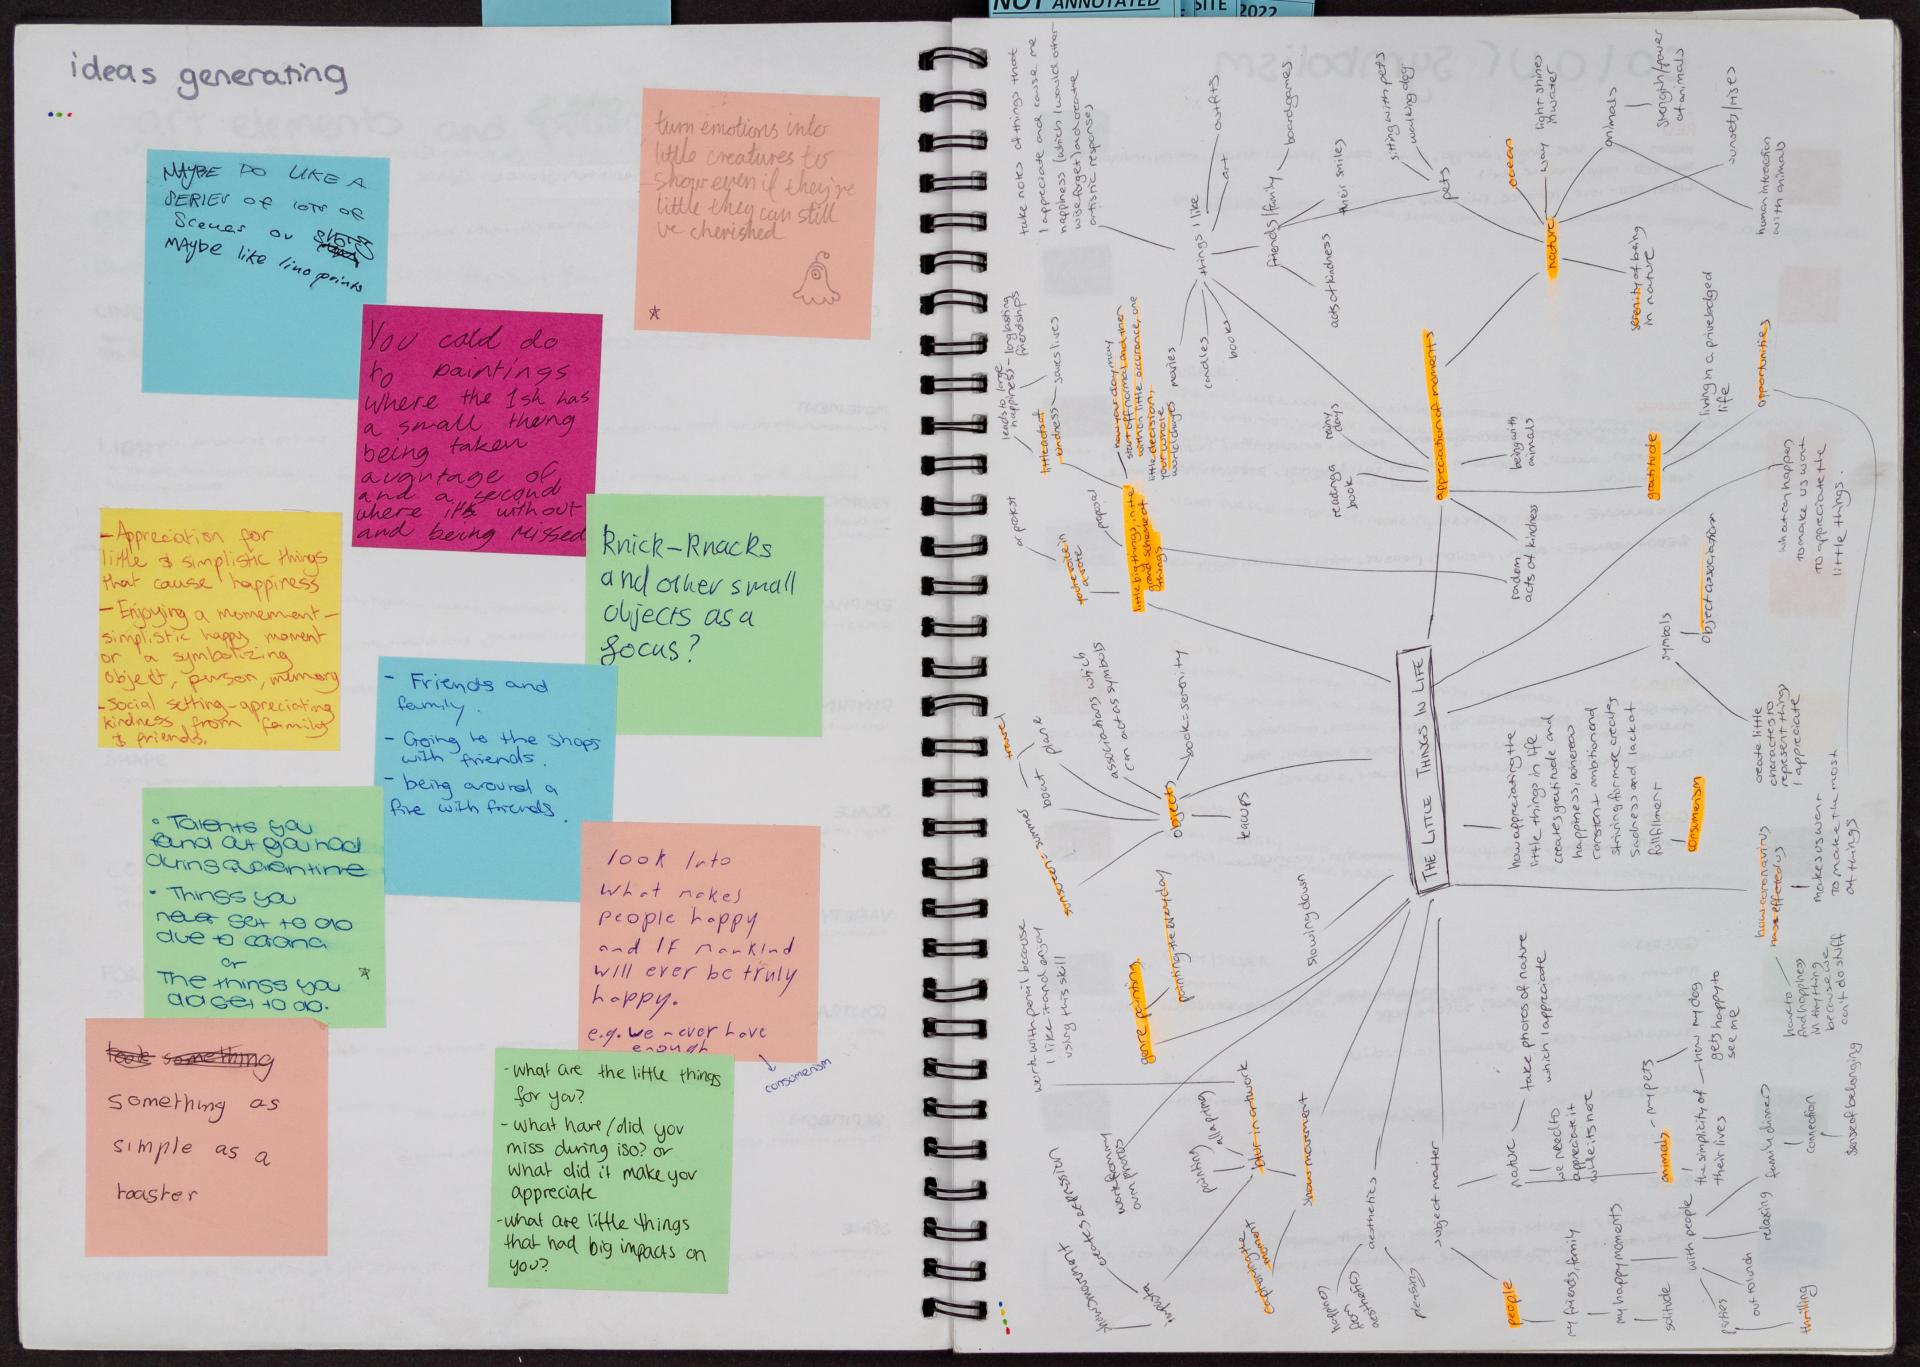 NOT ANNOTATED
SITE
2022
ideas generating
MAYBE DO LIKE A
SERIES OF LOTS OF
Scenes or
MAYBE like lino prints
turn emotions into
little creatures to
show even if they're
little they can still
be cherished
You cold do
to paintings
where the 1sh has
a small theing
being taken
avantage of
and a second
where its without
and being missed
- Appreciation for
little & simplistic things
that cause happiness
- Enjoying a momement -
simplistic happy moment
or a symbolizing
object, person, memory
- Social setting - apreciating
kindness from family
& friends.
Knick-Knacks
and other small
objects as a
focus?
- Friends and
family.
- Going to the shops
with friends.
- being around a
fire with friends.
• Talents you
found out you had
during quarentine
• Things you
never get to do
due to corona
or
The things you
do get to do.
look into
what makes
people happy
and IF mankind
will ever be truly
happy.
e.g. we never have
enough
consumerism
something
something as
simple as a
toaster
- what are the little things
for you?
- what have/did you
miss during iso? or
what did it make you
appreciate
- what are little things
that had big impacts on
you?
THE LITTLE THINGS IN LIFE
take notes of things that
I appreciate and cause me
happiness (which I would other-
wise forget) and create
artistic responses
things I like
art
outfits
movies
candles
books
friends/family
boardgames
their smiles
acts of kindness
pets
sitting with pets
walking dog
nature
ocean
way light shines
in water
animals
strength/power
of animals
sunsets/rises
human interaction
with animals
serenity of being
in nature
appreciation of moments
rainy
days
reading a
book
being with
animals
random
acts of kindness
gratitude
living in a priveledged
life
opportunities
what can happen
to make us want
to appreciate the
little things.
little big things in the
grand scheme of
things
little acts of
kindness
saves lives
leads to large
happiness
long lasting
friendships
how your day may
start off normal and then
with one little occurance, one
little decision,
your whole
world changes
proposal
your voice in
a vote
or protest
symbols
Object association
create little
characters to
represent things
I appreciate
objects
associations which
can act as symbols
book = serenity
teacups
plane
travel
boat
sunscreen = summer
how appreciating the
little things in life
creates gratitude and
happiness, whereas
consistent ambition and
striving for more creates
sadness and lack of
fulfillment
consumerism
how coronavirus
has effected us
makes us want
to make the most
of things
have to
find happiness
in anything
because we
can't do stuff
slowing down
genre painting
painting the everyday
work with pencil because
I like it and enjoy
using this skill
work from my
own photos
blur in artwork
painting
show movement
creates expression
capturing the
moment
show movement
aesthetics
happiness
pleasing
subject matter
nature
take photos of nature
which I appreciate
we need to
appreciate it
while its here
animals
my pets
how my dog
gets happy to
see me
the simplicity of
their lives
people
my friends, family
my happy moments
solitude
with people
family dinners
connection
sense of belonging
relaxing
out to lunch
parties
thrilling